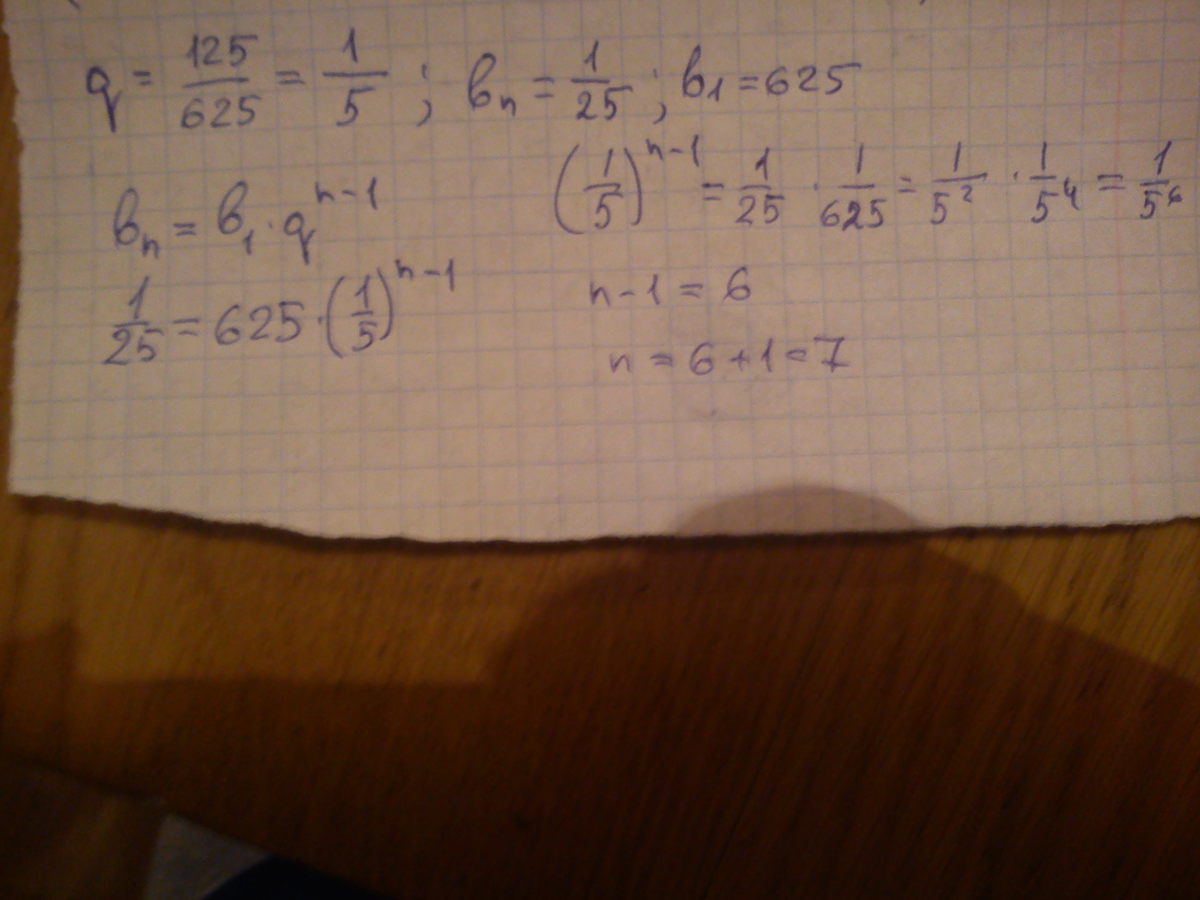 q = 125/625 = 1/5 ; вn = 1/25 ; в1 = 625
вn = в1 · q^(n-1)
1/25 = 625 · (1/5)^(n-1)
(1/5)^(n-1) = 1/25 · 1/625 = 1/5² · 1/5⁴ = 1/5⁶
n - 1 = 6
n = 6 + 1 = 7